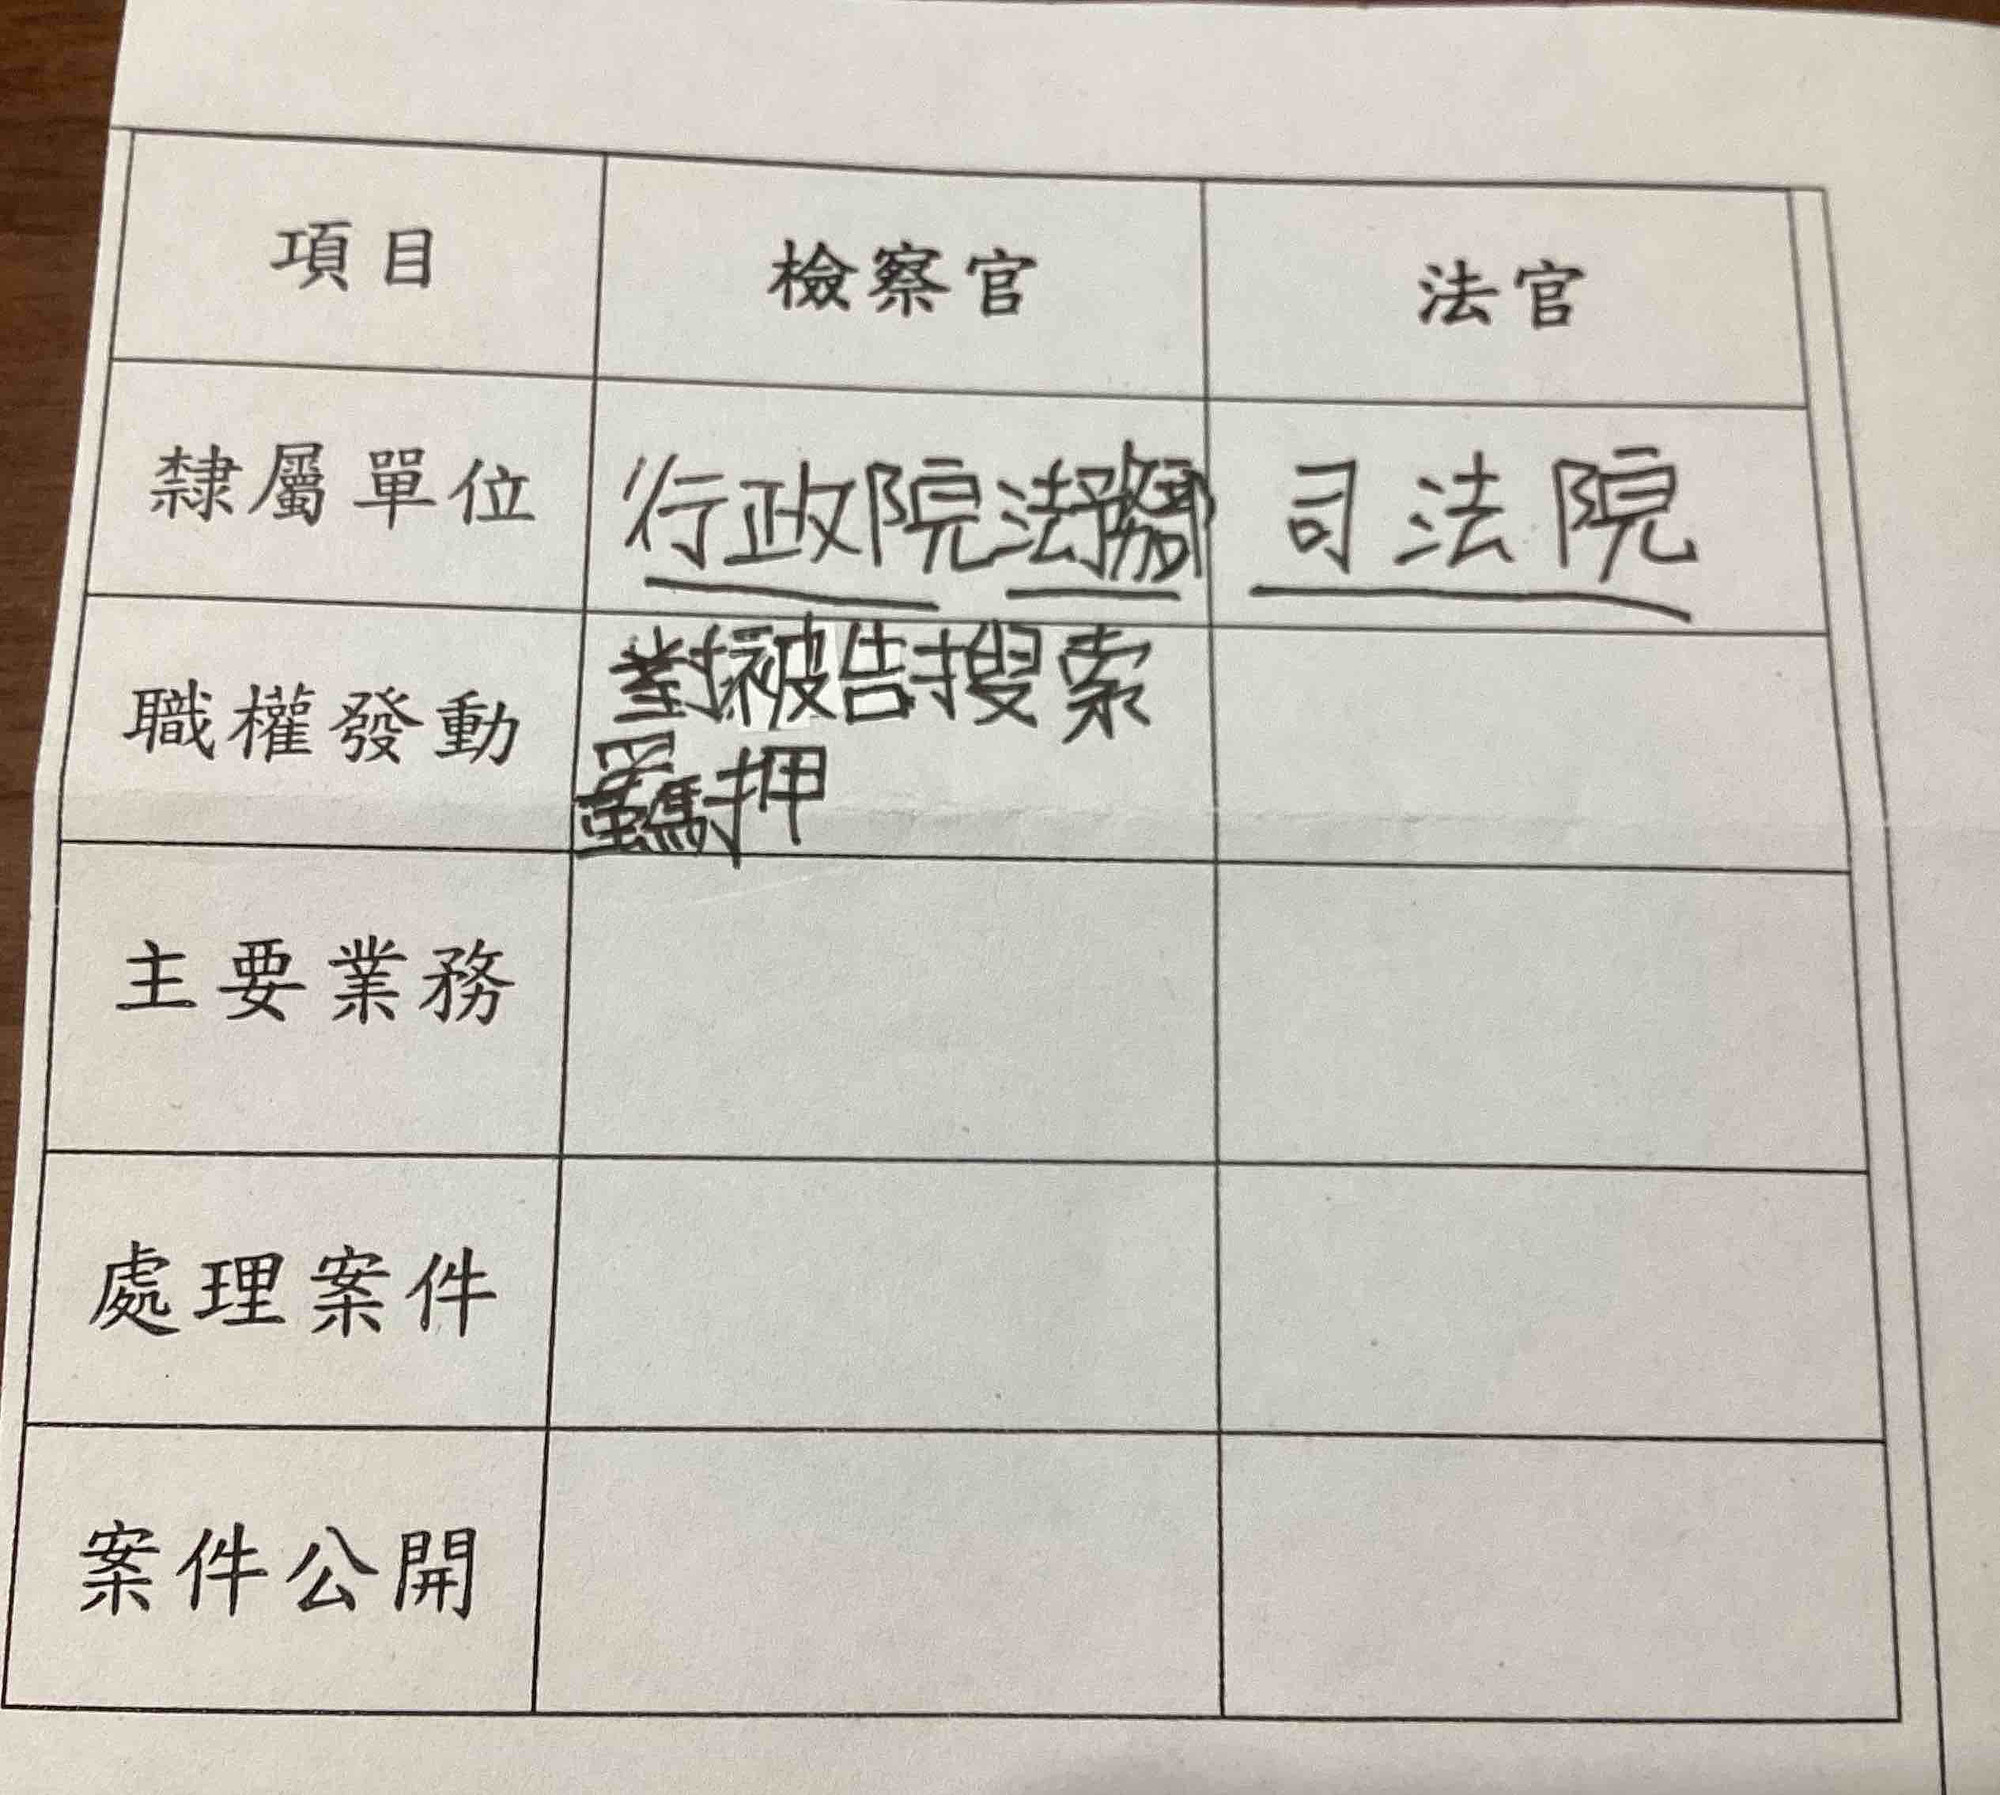 項目 檢察官 法官
隸屬單位 行政院法務部 司法院
職權發動 對被告搜索
羈押
主要業務
處理案件
案件公開